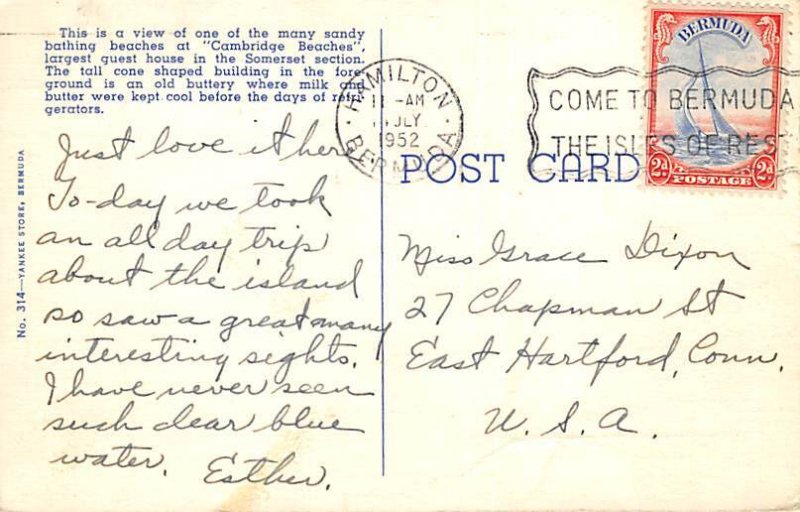 This is a view of one of the many sandy
bathing beaches at "Cambridge Beaches",
largest guest house in the Somerset section.
The tall cone shaped building in the fore-
ground is an old buttery where milk and
butter were kept cool before the days of refri
gerators.
Just love it here
To-day we took
an all day trip
about the island
so saw a great many
interesting sights.
I have never seen
such clear blue
water.
Esther.
No. 314—YANKEE STORE, BERMUDA
HAMILTON
11 - AM
JLY
1952
BERMUDA
COME TO BERMUDA
THE ISLES OF REST
BERMUDA
2d. POSTAGE 2d.
POST CARD
Miss Grace Dixon
27 Chapman St
East Hartford, Conn.
U. S. A.